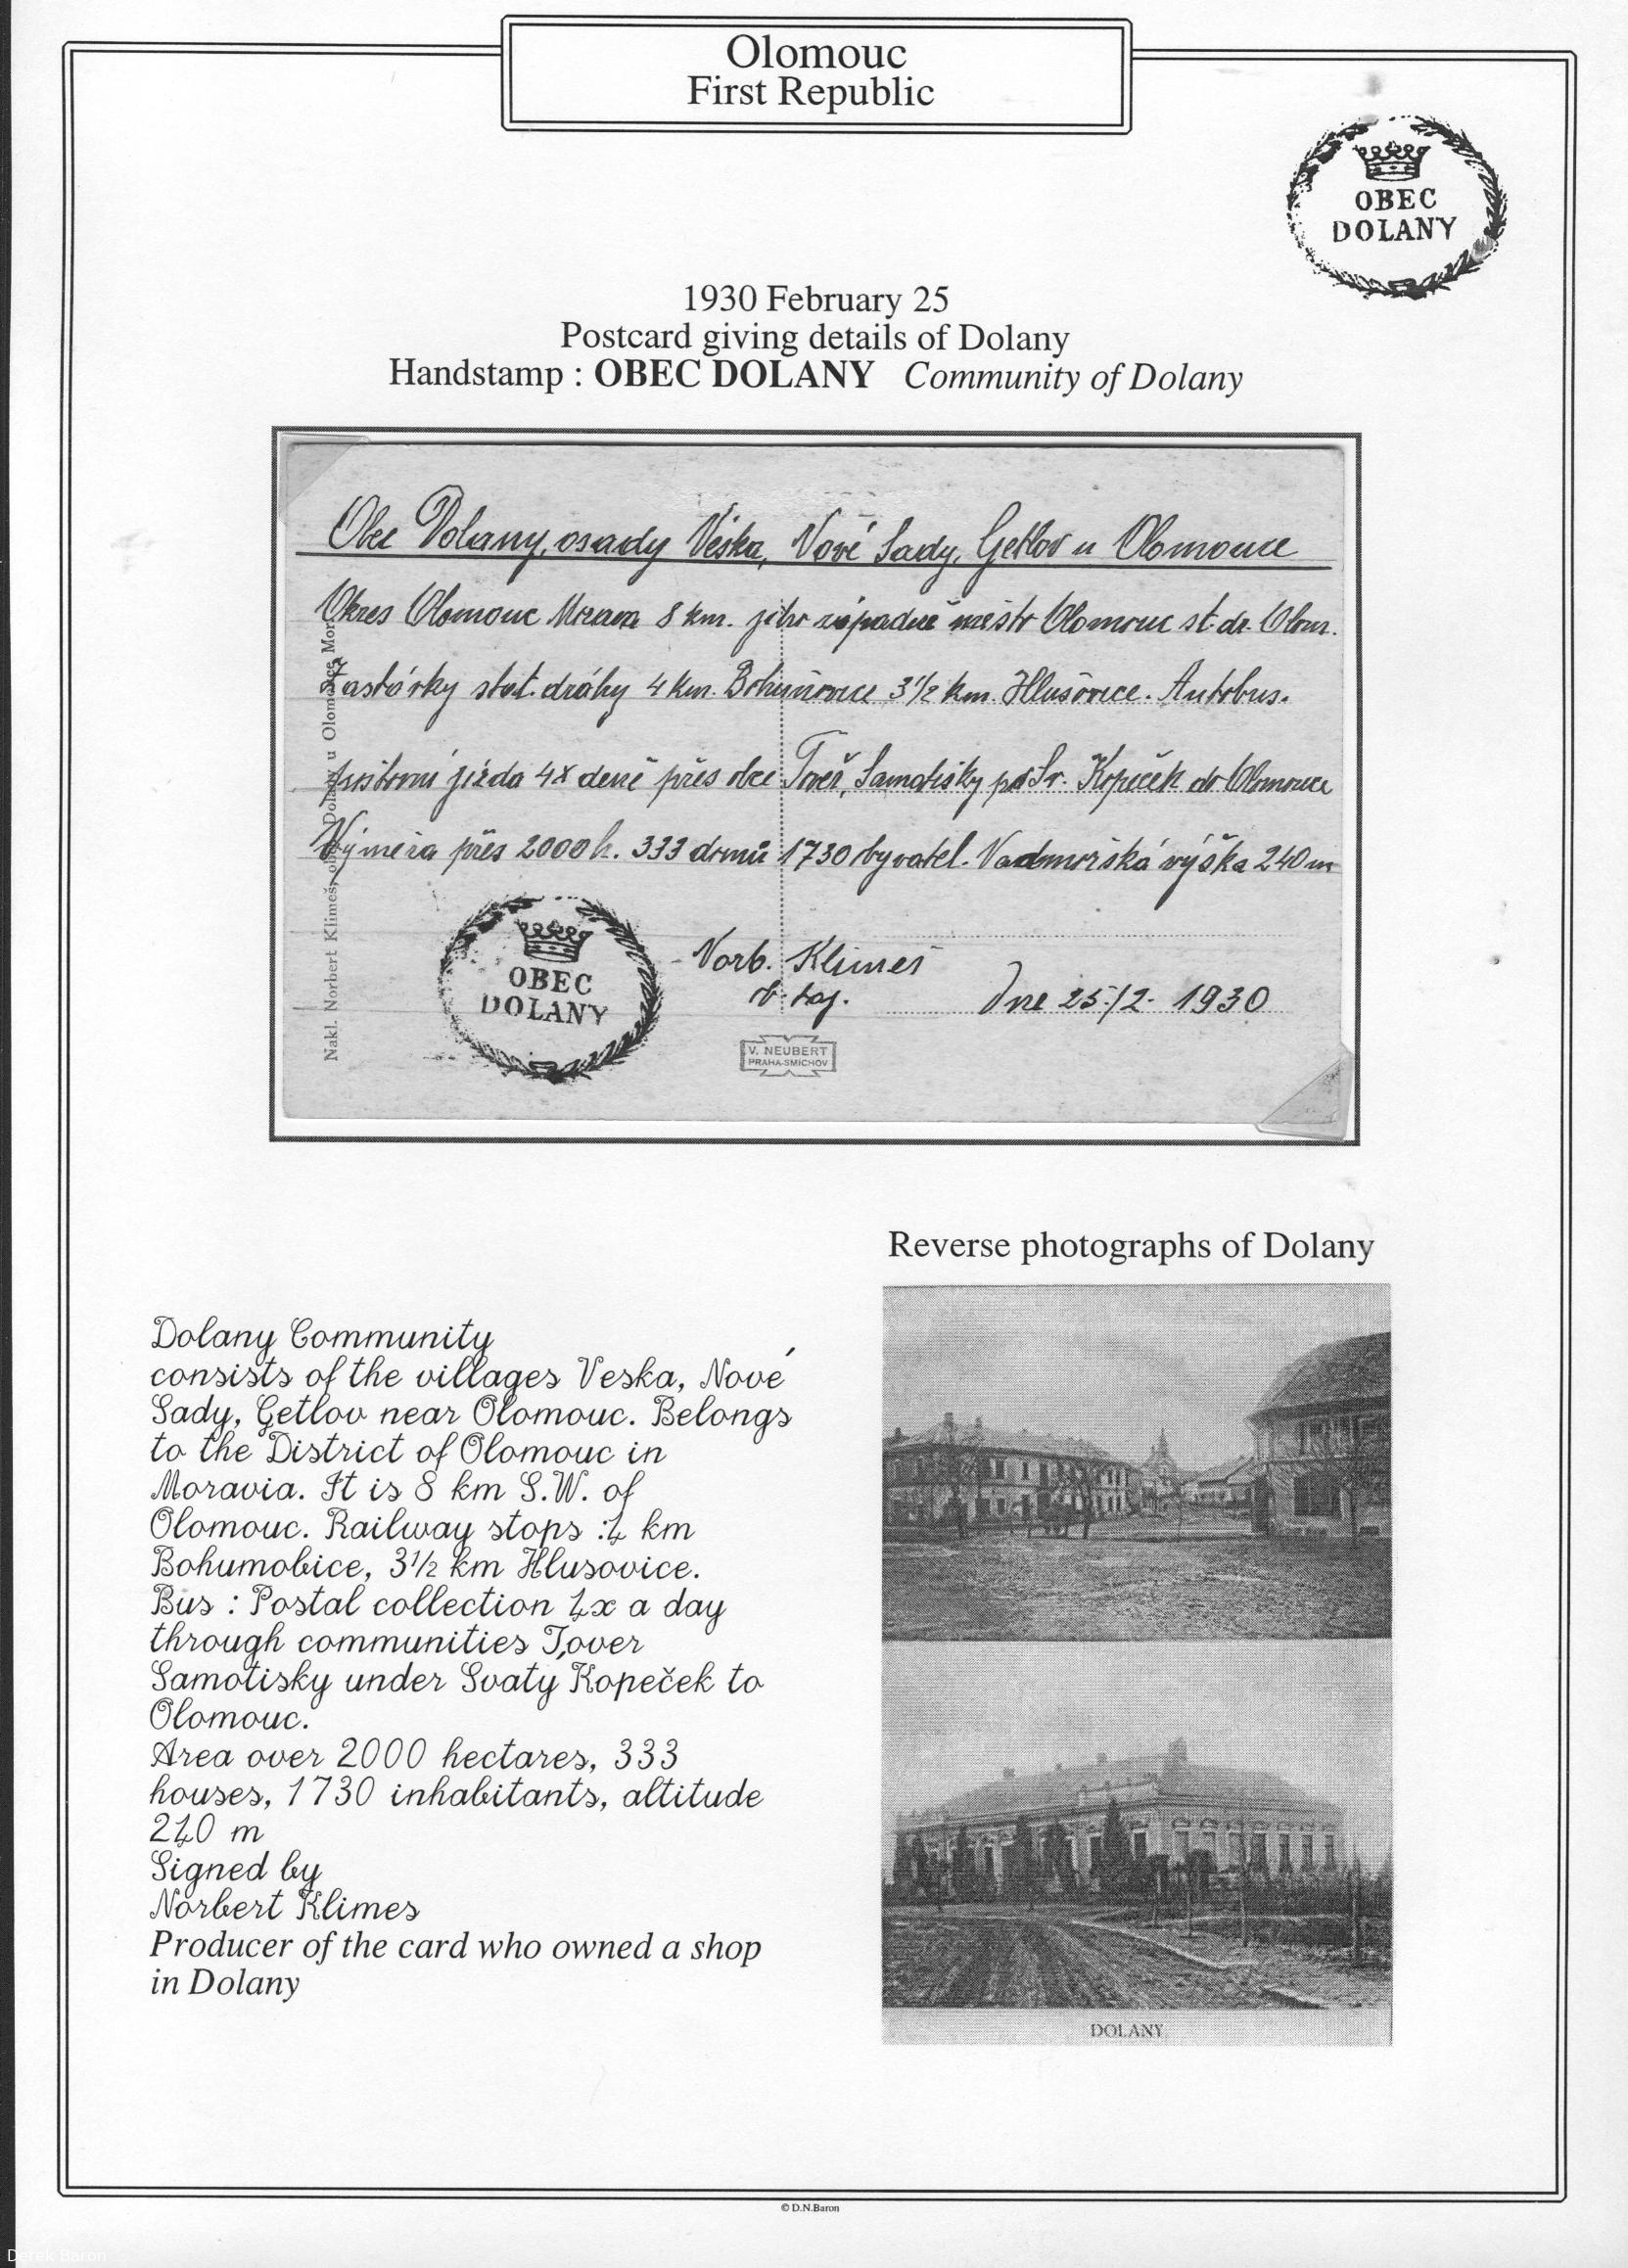 Olomouc
First Republic
OBEC
DOLANY
1930 February 25
Postcard giving details of Dolany
Handstamp : OBEC DOLANY Community of Dolany
Obec Dolany, osady Véska, Nové Sady, Getlov u Olomouce
Okres Olomouc Morava 8 km. jiho západně město Olomouc st. dr. Olom.
Zastávky stát. dráhy 4 km. Bohuňovice 3½ km. Hlušovice. Autobus.
poštovní jízda 4x deně přes obce Tověř, Samotišky pod Sv. Kopeček do Olomouce
Výměra přes 2000 h. 333 domů 1730 obyvatel. Nadmořská výška 240 m
OBEC
DOLANY
Norb. Klimeš
Dne 25./2. 1930
V. NEUBERT
PRAHA-SMÍCHOV
Nakl. Norbert Klimeš, Dolany u Olomouce, Mor.
Reverse photographs of Dolany
Dolany Community
consists of the villages Veska, Nové
Sady, Getlov near Olomouc. Belongs
to the District of Olomouc in
Moravia. It is 8 km S.W. of
Olomouc. Railway stops :4 km
Bohumobice, 3½ km Hlusovice.
Bus : Postal collection 4x a day
through communities Tover
Samotisky under Svaty Kopeček to
Olomouc.
Area over 2000 hectares, 333
houses, 1730 inhabitants, altitude
240 m
Signed by
Norbert Klimes
Producer of the card who owned a shop
in Dolany
DOLANY
© D.N.Baron
Derek Baron